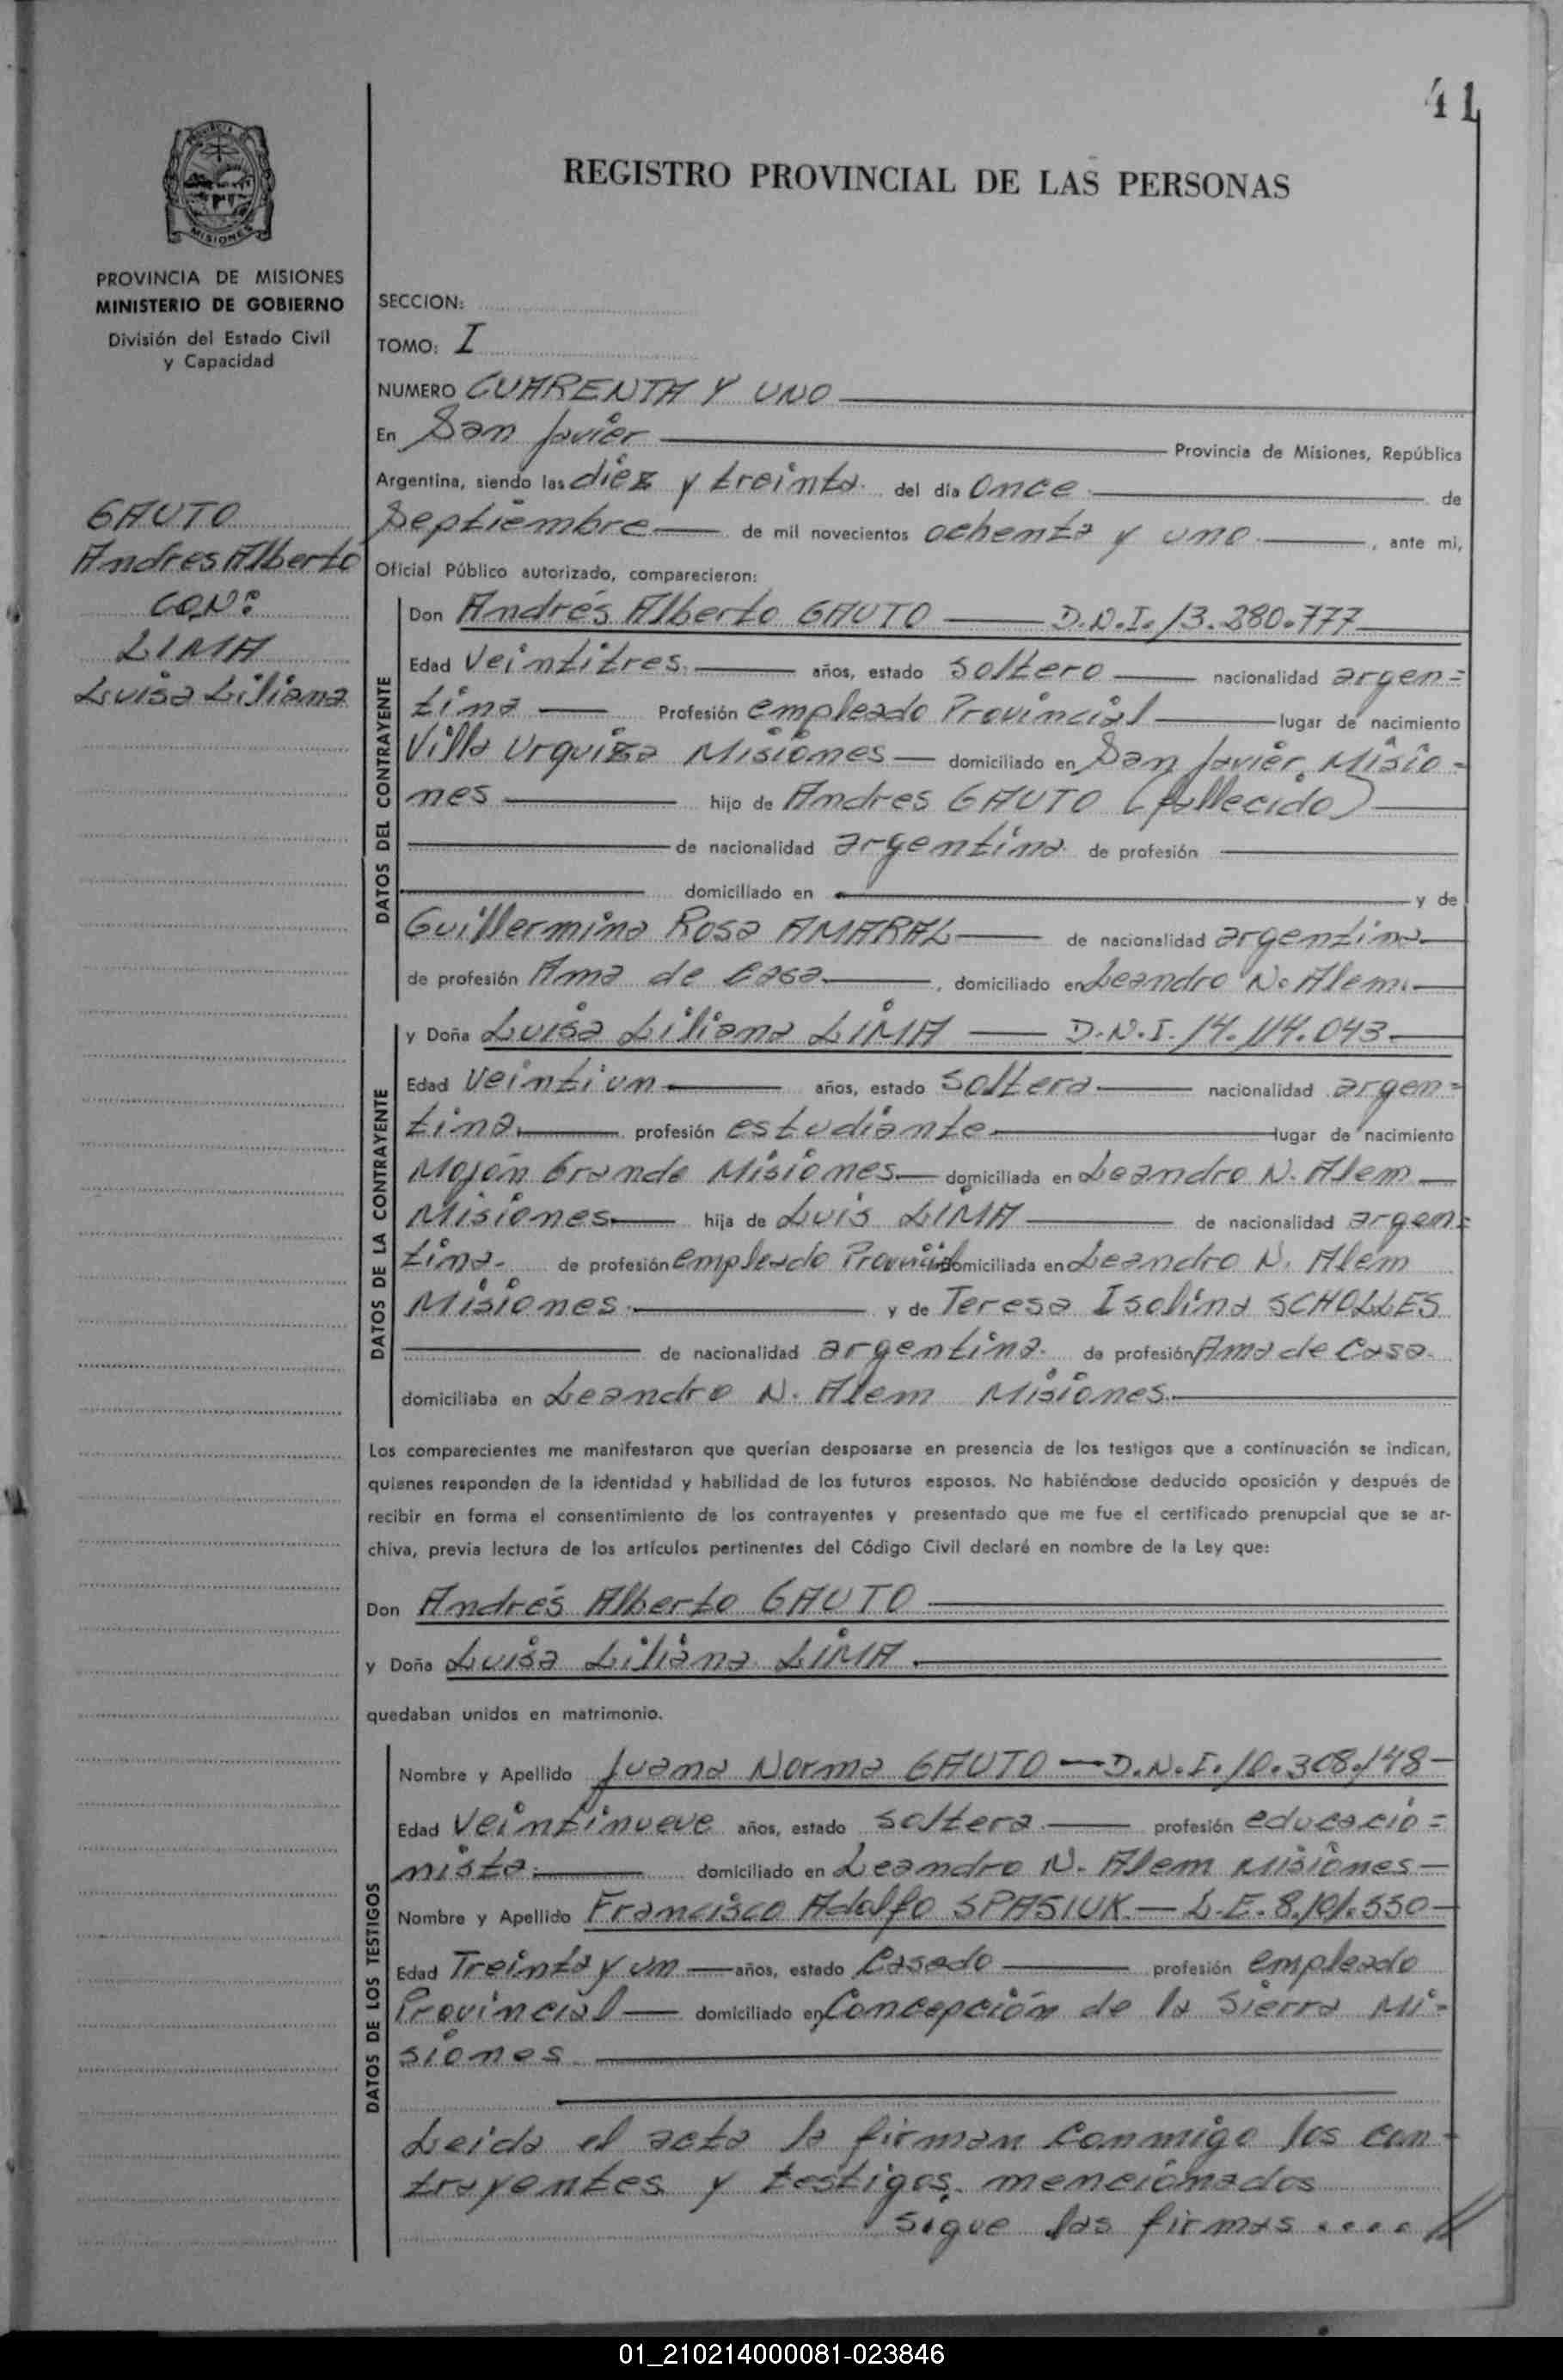 41
REGISTRO PROVINCIAL DE LAS PERSONAS
PROVINCIA DE MISIONES
MINISTERIO DE GOBIERNO
División del Estado Civil
y Capacidad
GAUTO
Andres Alberto
CON:
LIMA
Luisa Liliana
SECCION:
TOMO: I
NUMERO CUARENTA Y UNO
En San Javier Provincia de Misiones, República
Argentina, siendo las diez y treinta del día Once de
Septiembre de mil novecientos ochenta y uno, ante mi,
Oficial Público autorizado, comparecieron:
DATOS DEL CONTRAYENTE
Don Andrés Alberto GAUTO D.N.I. 13.280.777
Edad Veintitres años, estado soltero nacionalidad argen=
tina Profesión empleado Provincial lugar de nacimiento
Villa Urquiza Misiones domiciliado en San Javier, Misio=
nes hijo de Andres GAUTO (fallecido)
de nacionalidad argentina de profesión
domiciliado en y de
Guillermina Rosa AMARAL de nacionalidad argentina
de profesión Ama de Casa, domiciliado en Leandro N. Alem.
DATOS DE LA CONTRAYENTE
y Doña Luisa Liliana LIMA D.N.I. 14.114.043
Edad Veintiun años, estado Soltera nacionalidad argen=
tina profesión estudiante lugar de nacimiento
Mojón Grande Misiones domiciliada en Leandro N. Alem
Misiones hija de Luis LIMA de nacionalidad argen=
tina. de profesión empleado Provincial domiciliada en Leandro N. Alem
Misiones y de Teresa Isolina SCHOLLES
de nacionalidad argentina. de profesión Ama de Casa.
domiciliaba en Leandro N. Alem Misiones.
Los comparecientes me manifestaron que querían desposarse en presencia de los testigos que a continuación se indican,
quienes responden de la identidad y habilidad de los futuros esposos. No habiéndose deducido oposición y después de
recibir en forma el consentimiento de los contrayentes y presentado que me fue el certificado prenupcial que se ar-
chiva, previa lectura de los artículos pertinentes del Código Civil declaré en nombre de la Ley que:
Don Andrés Alberto GAUTO
y Doña Luisa Liliana LIMA.
quedaban unidos en matrimonio.
DATOS DE LOS TESTIGOS
Nombre y Apellido Juana Norma GAUTO — D.N.I. 10.308.148
Edad Veintinueve años, estado soltera profesión educacio=
nista. domiciliado en Leandro N. Alem Misiones
Nombre y Apellido Francisco Adolfo SPASIUK — L.E. 8.101.550
Edad Treinta y un años, estado Casado profesión empleado
Provincial domiciliado en Concepción de la Sierra Mi=
siones.
Leida el acta la firman conmigo los con-
trayentes y testigos mencionados
Sigue las firmas .... //
01_210214000081-023846